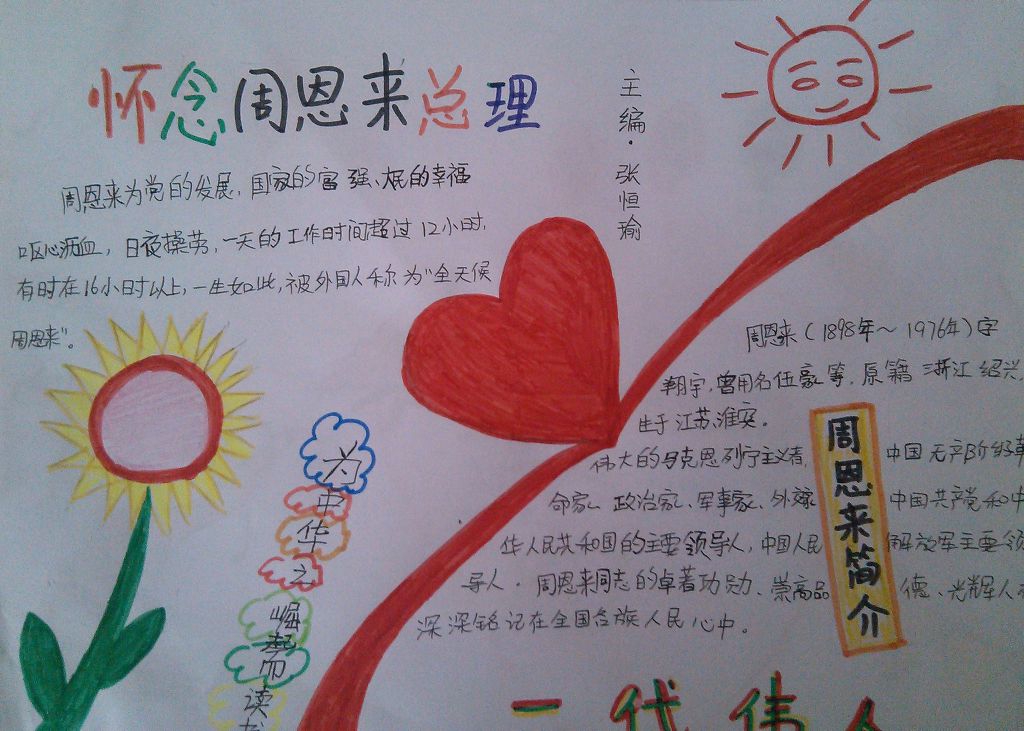 怀念周恩来总理
主编·张恒瑜
周恩来为党的发展，国家的富强、人民的幸福
呕心沥血，日夜操劳，一天的工作时间超过12小时，
有时在16小时以上，一生如此，被外国人称为"全天候
周恩来"。
为中华之崛起而读书
周恩来（1898年～1976年）字
翔宇，曾用名伍豪等，原籍浙江绍兴，
生于江苏淮安。
伟大的马克思列宁主义者，中国无产阶级革
命家、政治家、军事家、外交家 中国共产党和中
华人民共和国的主要领导人，中国人民解放军主要领
导人．周恩来同志的卓著功勋、崇高品德、光辉人
深深铭记在全国各族人民心中。
周恩来简介
一代伟人